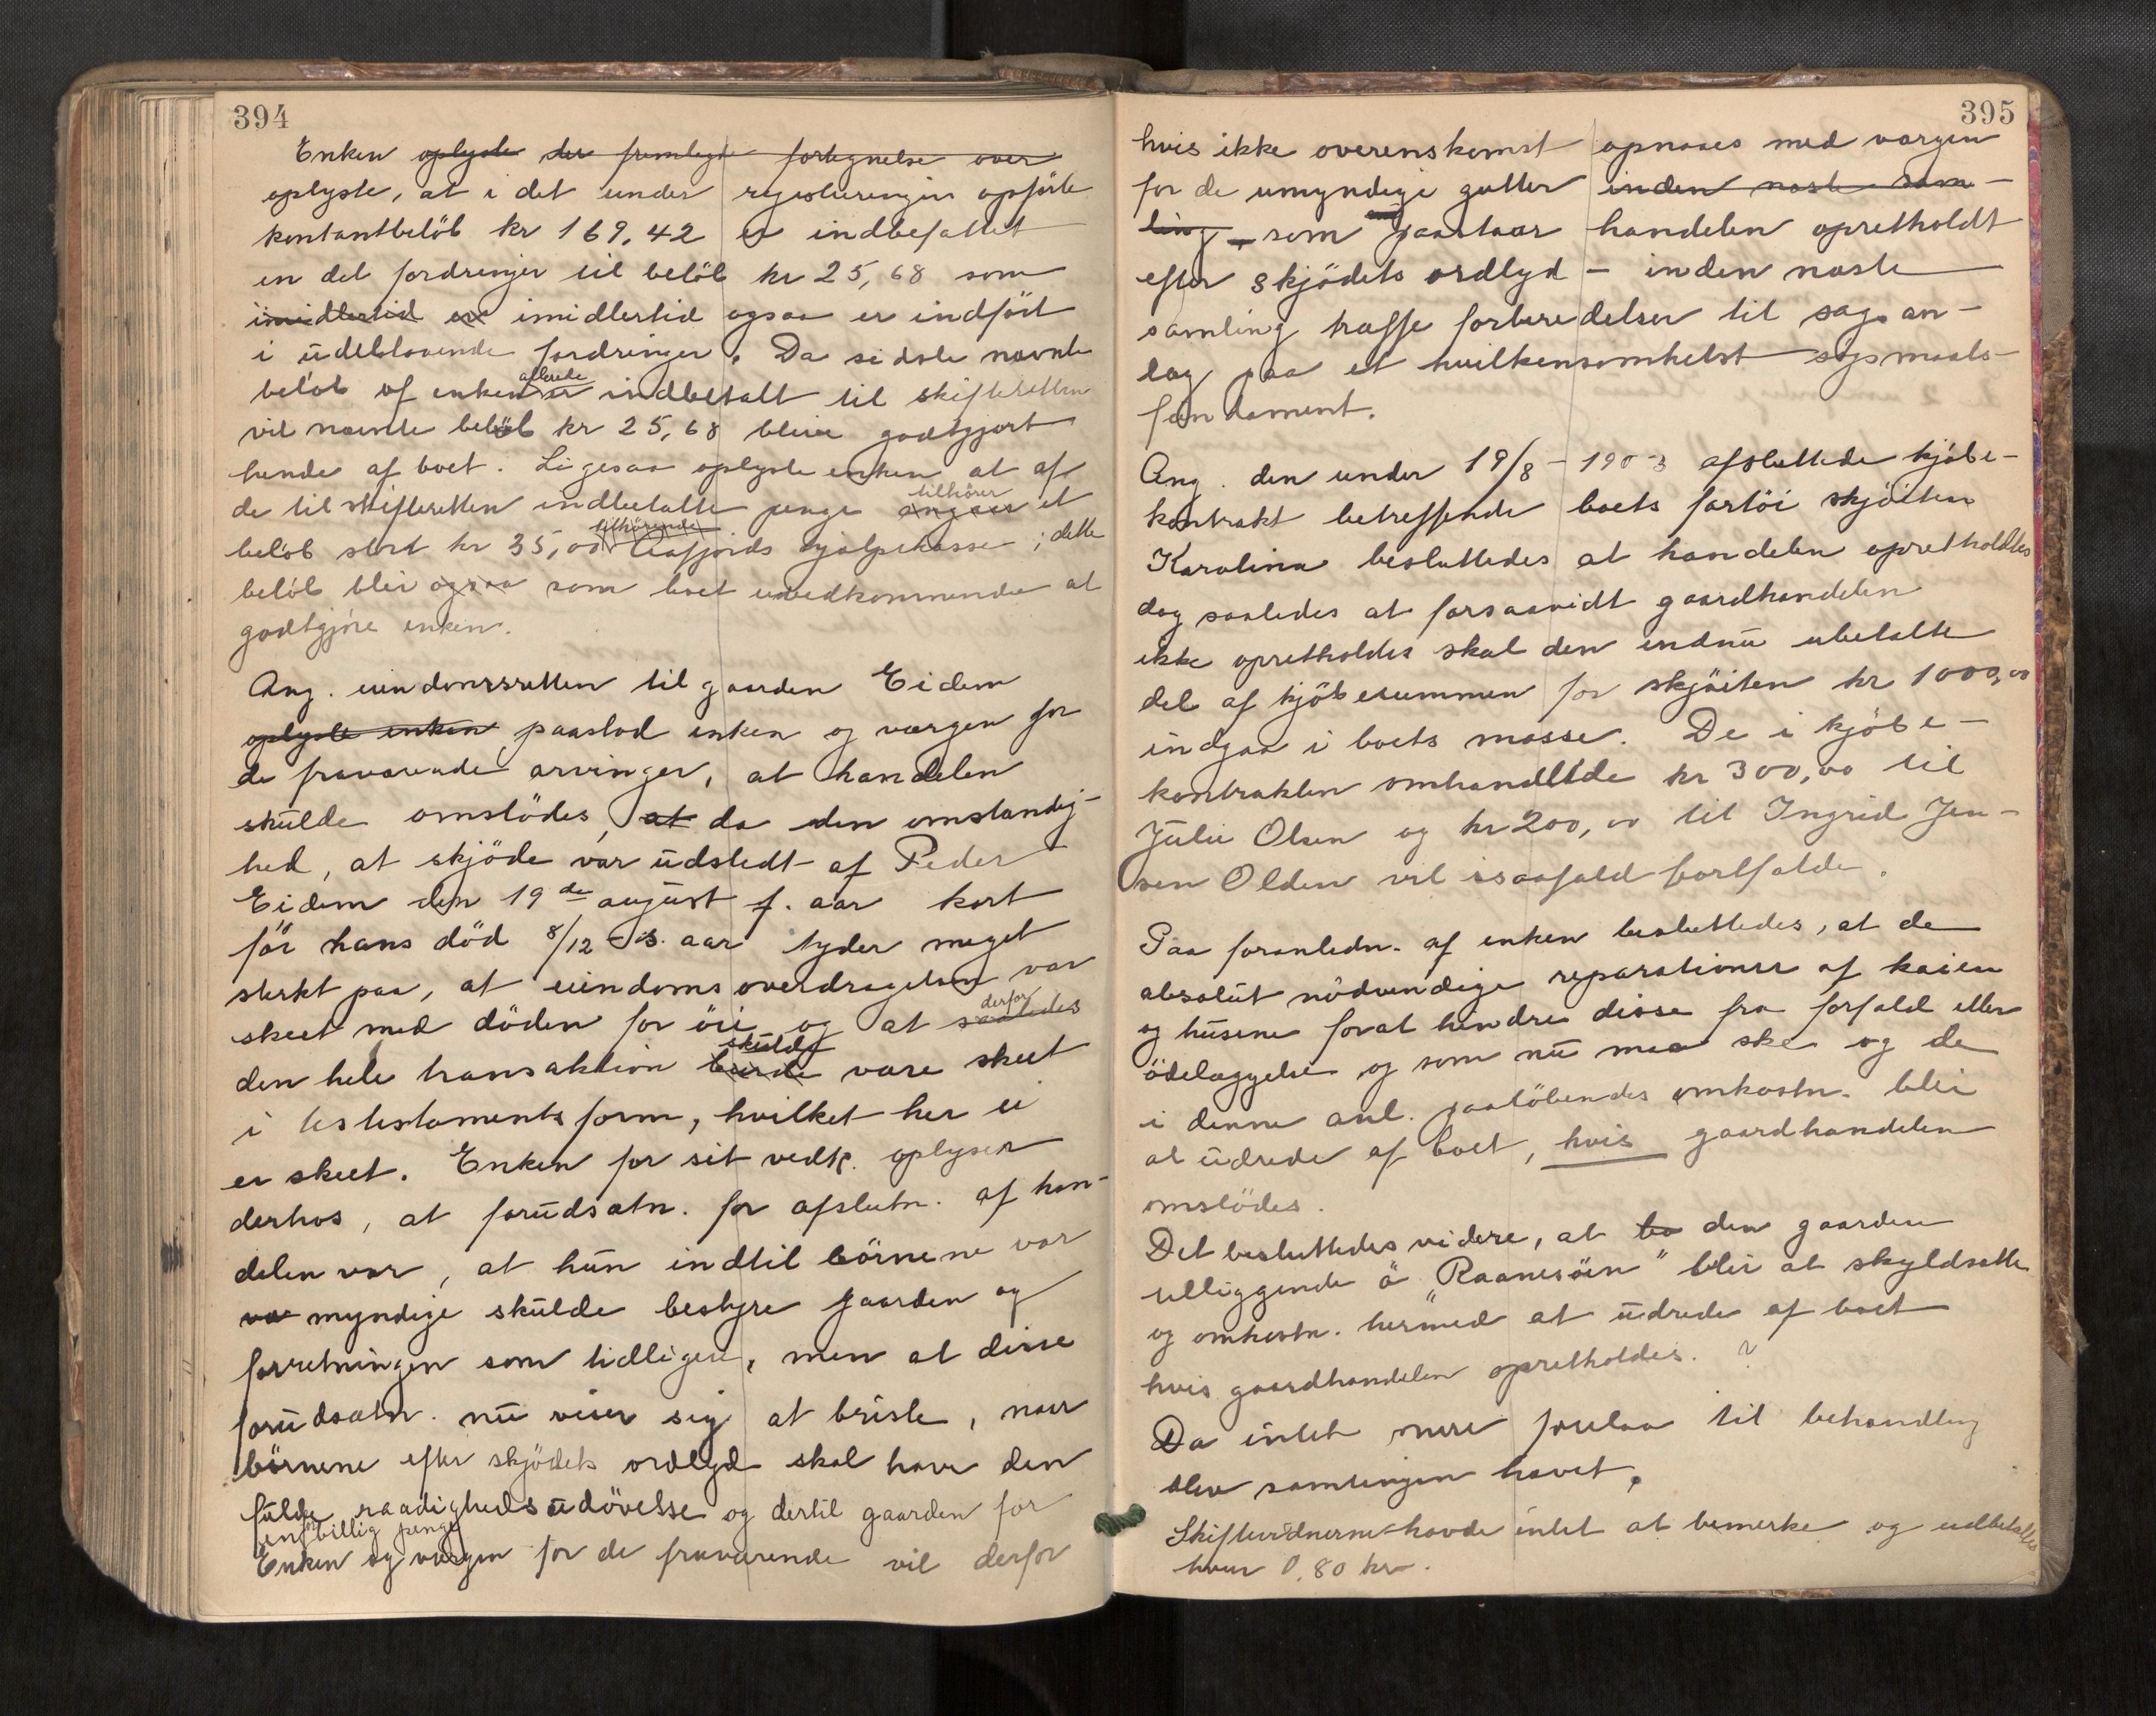 394
Enken oplyste der fremlagt fortegnelse over
oplyste, at i det under registreringen opförte
kontantbelöb kr 169,42 er indbefattet
en del fordringer til belöb kr 25,68 som
imidlertid er imidlertid ogsaa er indfört
i udestaaende fordringer. Da sidste nævnte
belöb af enken allerede er indbetalt til skifteretten
vil nævnte belöb kr 25,68 blive godtgjort
hende af boet. Ligesaa oplyste enken at af
de til skifteretten indbetalte penge angaar tilhörer et
belöb stort kr 35,00 tilhörende Aafjords hjælpekasse; dette
belöb blir ogsaa som boet uvedkommende at
godtgjöre enken.
Ang. eiendomsretten til gaarden Eidem
oplyste enken paastod enken og værgen for
de fraværende arvinger, at handelen
skulde omstödes, at da den omstændig-
hed, at skjöde var udstedt af Peder
Eidem den 19de august f. aar kort
för hans död 8/12 s. aar tyder meget
sterkt paa, at eiendomsoverdragelsen var
skeet med döden for öie og at saaledes derfor
den hele transaktion burde skulde være skeet
i testamentsform, hvilket her ei
er skeet. Enken for sit vedk. oplyser
derhos, at forudsætn. for afslutn. af han-
delen var, at hun indtil börnene var
var myndige skulde bestyre gaarden og
forretningen som tidligere, men at disse
forudsætn. nu viser sig at briste, naar
börnene efter skjödets ordlyd skal have den
fulde raadighedsudövelse og dertil gaarden for
en for billig penge
Enken og værgen for de fraværende vil derfor
395
hvis ikke overenskomst opnaaes med værgen
for de umyndige gutter inden næste sam-
ling - som paastaar handelen opretholdt
efter skjödets ordlyd - inden næste
samling træffe forberedelser til sagsan-
læg paa et hvilketsomhelst sögsmaals-
fundament.
Ang. den under 19/8 - 1903 afsluttede kjöbe-
kontrakt betreffende boets fartöi skjöiten
Karolina besluttedes at handelen opretholdtes
dog saaledes at forsaavidt gaardhandelen
ikke opretholdes skal den endnu ubetalte
del af kjöbesummen for skjöiten kr 1000,00
indgaa i boets masse. De i kjöbe-
kontrakten omhandlede kr 300,00 til
Julie Olsen og kr 200,00 til Ingrid Jen-
sen Olden vil isaafald bortfalde.
Paa foranledn. af enken besluttedes, at de
absolut nödvendige reparationer af kaien
og husene forat hindre disse fra forfald eller
ödelæggelse og som nu maa ske og de
i denne anl. paalöbendes omkostn. blir
at udrede af boet, hvis gaardhandelen
omstödes.
Det besluttedes videre, at bo den gaarden
tilliggende ö "Raanesöien" blir at skyldsætte
og omkostn. hermed at udrede af boet
hvis gaardhandelen opretholdes. ?
Da intet mere forelaa til behandling
blev samlingen hævet.
Skiftevidnerne havde intet at bemerke og udbetaltes
hver 0,80 kr.